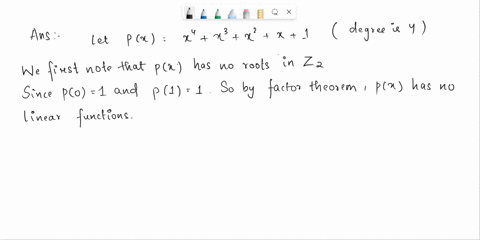 Ans:- Let p(x) = x⁴ + x³ + x² + x + 1 ( degree is 4 )
We first note that p(x) has no roots in Z₂
Since p(0) = 1 and p(1) = 1. So by factor theorem, p(x) has no
linear functions.